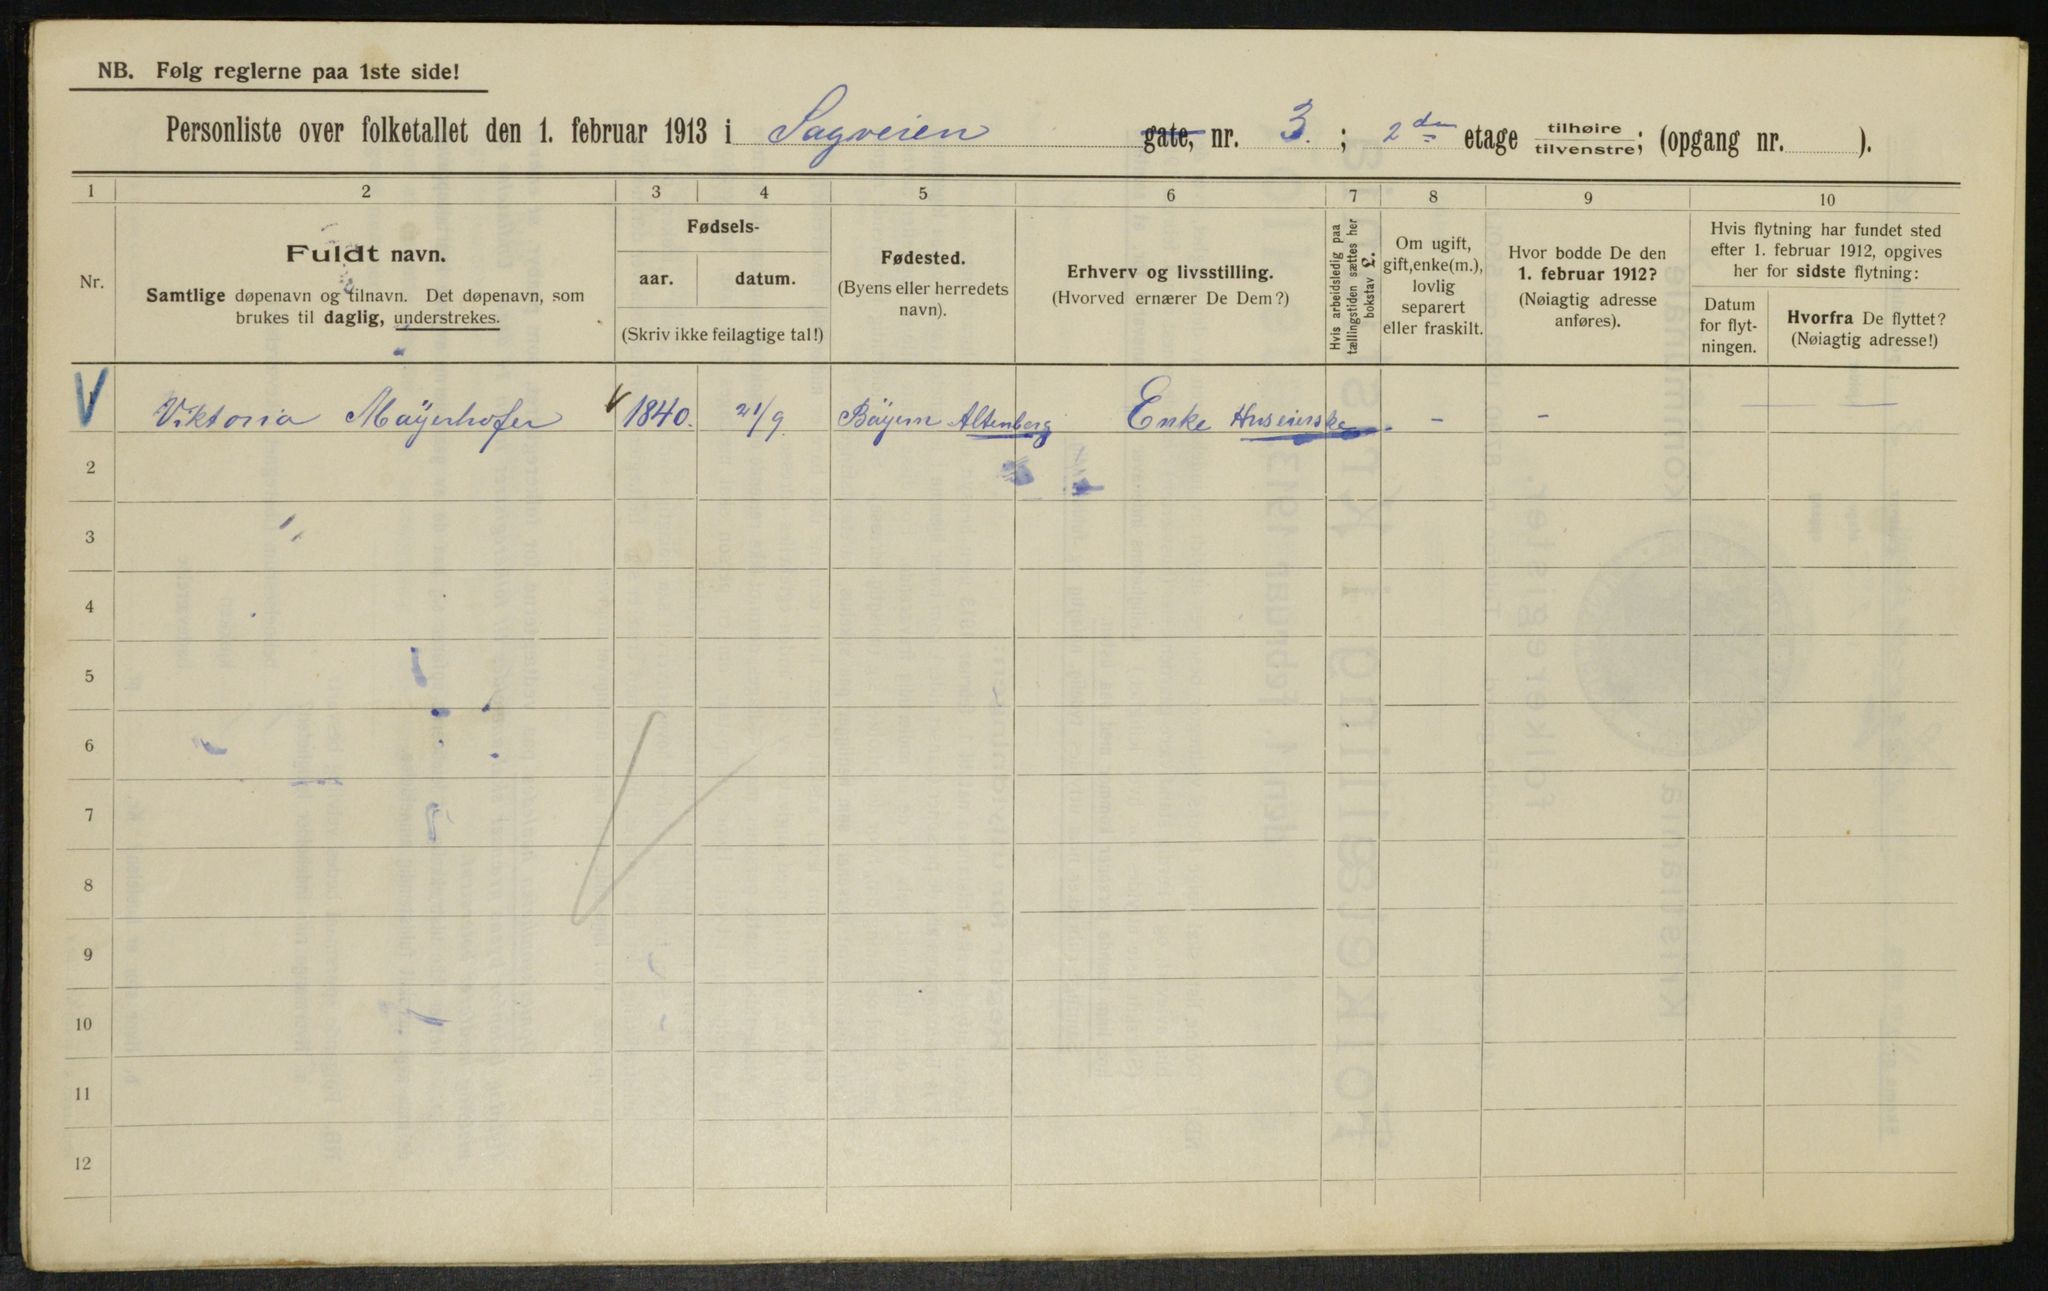 NB. Følg reglerne paa 1ste side!
Personliste over folketallet den 1. februar 1913 i Sagveien gate, nr. 3. ; 2den etage tilhøire tilvenstre; (opgang nr. ).
1 2 3 4 5 6 7 8 9 10
Nr.
Fuldt navn.
Samtlige døpenavn og tilnavn. Det døpenavn, som
brukes til daglig, understrekes.
Fødsels-
aar. datum.
(Skriv ikke feilagtige tal!)
Fødested.
(Byens eller herredets
navn).
Erhverv og livsstilling.
(Hvorved ernærer De Dem?)
Hvis arbeidsledig paa
tællingstiden sættes her
bokstav £.
Om ugift,
gift, enke(m.),
lovlig
separert
eller fraskilt.
Hvor bodde De den
1. februar 1912?
(Nøiagtig adresse
anføres).
Hvis flytning har fundet sted
efter 1. februar 1912, opgives
her for sidste flytning:
Datum
for flyt-
ningen.
Hvorfra De flyttet?
(Nøiagtig adresse!)
1 Viktoria Mayerhofer 1840. 21/9 Bayern Altenberg Enke Huseierske - -
2
3
4
5
6
7
8
9
10
11
12